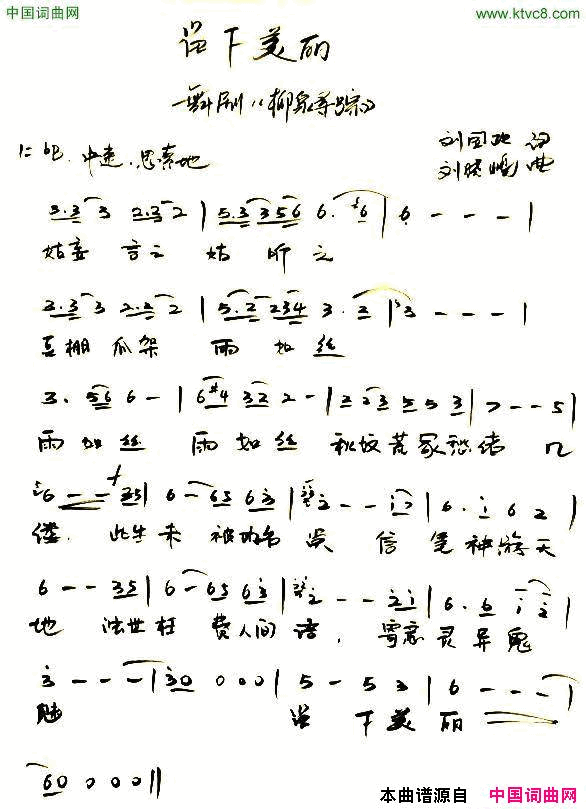 中国词曲网
www.ktvc8.com
留下美丽
—舞剧《柳泉寻踪》
1=bE 中速、思索地
刘国 词
刘晓 曲
3.3 3 2.3 2 | 5.3 3 5 6 6. #6 | 6 - - - |
姑妄言之 姑听之
3.3 3 2.2 2 | 5.2 2 3 4 3. 2 | 3 - - - |
豆棚瓜架 雨如丝
3. 5 6 6 - | 6 #4 3 2 2 - | 2 2 3 5 5 3 | 7 - - 5 |
雨如丝 雨如丝 秋坟荒冢愁绪几
6 - - 3 5 | 6 - 6 5 6 3 | 2 - - 1 7 | 6. 1 6 2 |
缕. 此生未被功名误 信笔神游天
6 - - 3 5 | 6 - 6 5 6 3 | 2 - - 2 1 | 6. 6 1 2 |
地 浊世枉费人间语, 寄意灵异鬼
3 - - - | 3 0 0 0 0 | 5 - 5 3 | 6 - - - |
魅 留下美丽
6 0 0 0 0 ||
本曲谱源自 中国词曲网